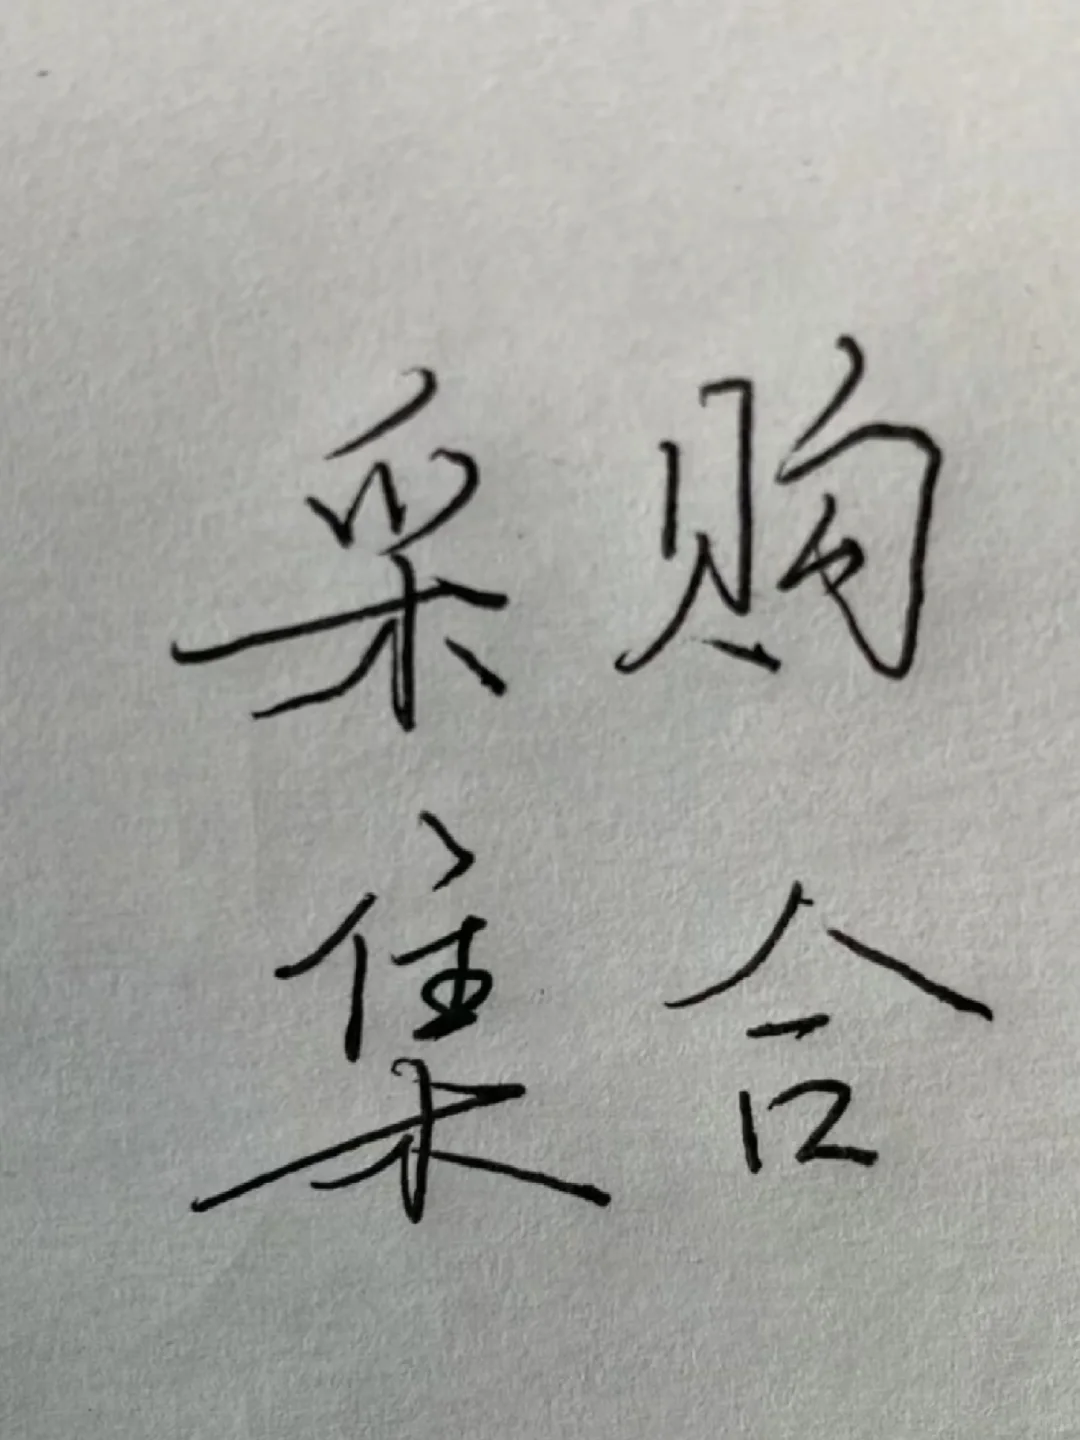 采购
集合